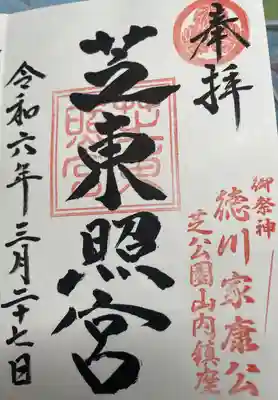 奉拝
御祭神
徳川家康公
芝公園山内鎮座
芝東照宮
令和六年三月二十七日